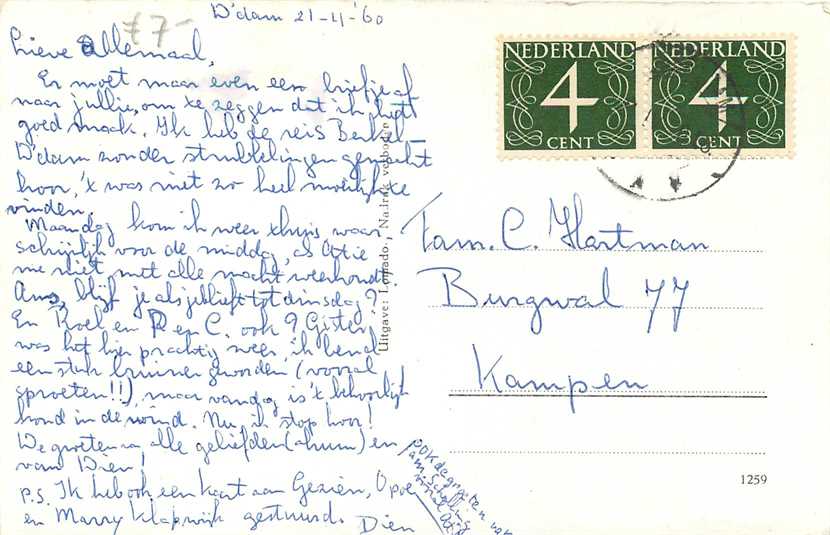 £7-
D'dam 21-4-'60
Lieve allemaal,
Er moet maar even een briefje af
naar jullie, om te zeggen dat ik het
goed maak. Ik heb de reis Berkel-
D'dam zonder strubbelingen gemaakt
hoor, 't was niet zo heel moeilijk te
vinden.
Maandag kom ik weer thuis waar
schijnlijk voor de middag, als
me niet met alle macht weerhoudt.
Ans, blijf je alsjeblieft tot dinsdag?
En Roel en R en C. ook? Gister
was het hier prachtig weer, ik ben al
een stuk bruiner geworden (vooral
sproeten!!), maar vandaag is 't behoorlijk
koud in de wind. Nu, ik stop hoor!
De groeten v. alle geliefden (ahum) en
van Dien!
P.S. Ik heb ook een kaart aan Gezien, Opoe
en Marry Klapwijk gestuurd. Dien
ook de groeten van
fam. Schelling
vooral
Uitgave: Lomado. Nadruk verboden
NEDERLAND
4
CENT
NEDERLAND
4
CENT
Fam. C. Hartman
Burgwal 77
Kampen
1259